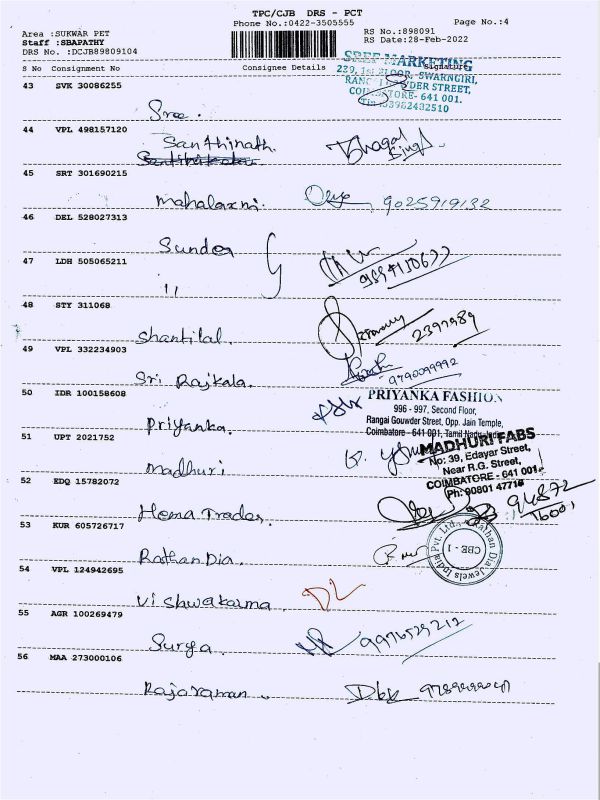 TPC/CJB DRS - PCT
Phone No.:0422-3505555
Page No.:4
Area :SUKWAR PET
Staff :SBAPATHY
DRS No. :DCJB89809104
RS No.:898091
RS Date:28-Feb-2022
S No Consignment No Consignee Details Signature
SREE MARKETING
239, 1st FLOOR, SWARNGIRI,
STREET,
COIMBATORE- 641 001.
43 SVK 30086255
Sree.
44 VPL 498157120
Santhinath.
45 SRT 301690215
Mahalaxmi. 9025919132
46 DEL 528027313
Sunder
47 LDH 505065211
11
48 STY 311068
Shantilal.
49 VPL 332234903
Sri Rajkala. 9790099992
50 IDR 100158608
Priyanka.
PRIYANKA FASHION
996 - 997, Second Floor,
Rangai Gouwder Street, Opp. Jain Temple,
Coimbatore - 641 001, Tamil Nadu, India
51 UPT 2021752
Madhuri.
MADHURI FABS
No: 39, Edayar Street,
Near R.G. Street,
COIMBATORE - 641 001.
52 EDQ 15782072
Hema Trader.
53 KUR 605726717
Rathan Dia.
Rathan Dia Jewels India Pvt. Ltd.
CBE - 1
54 VPL 124942695
Vishwakarma.
55 AGR 100269479
Surya.
56 MAA 273000106
Rajaraman.